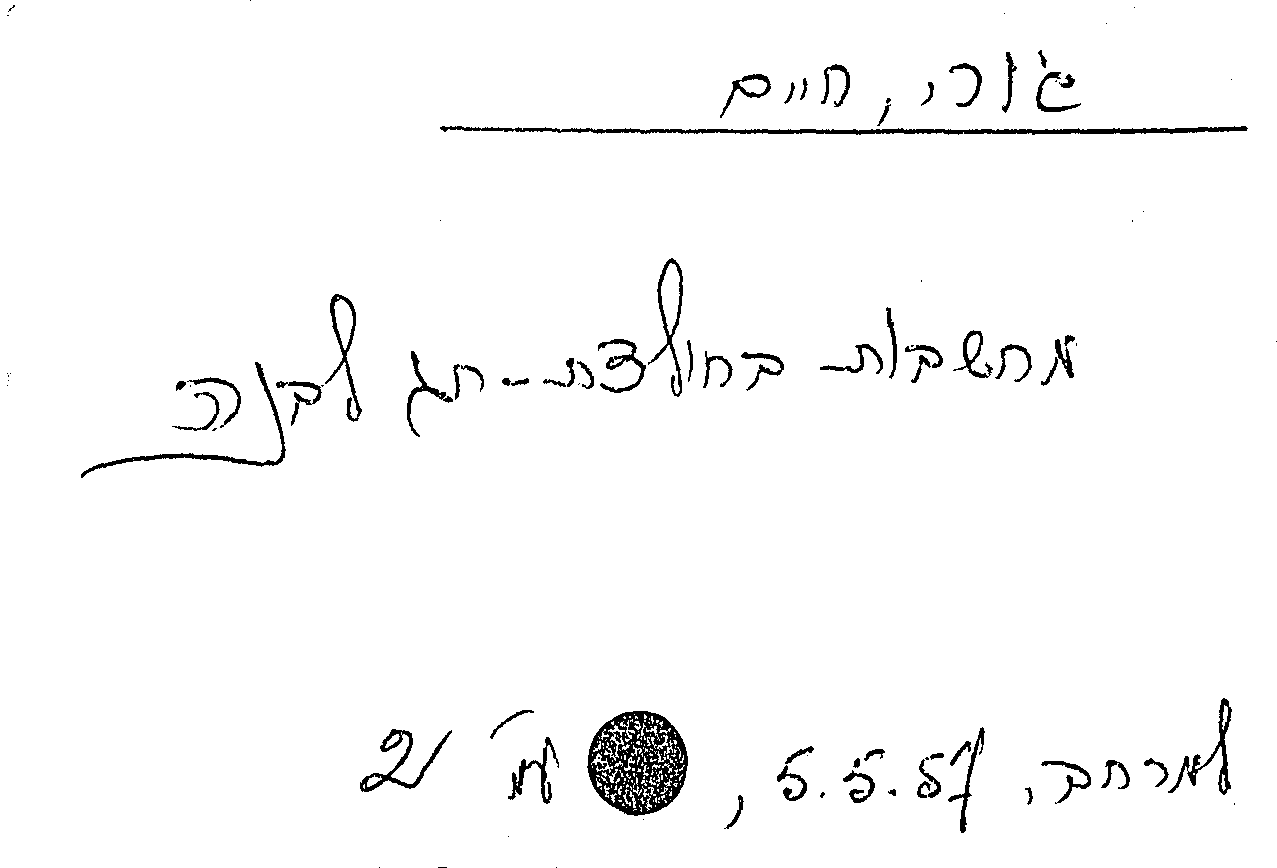 גורי, חיים
מחשבות בחולצת-חג לבנה
למרחב, 5.5.57, עמ' 2